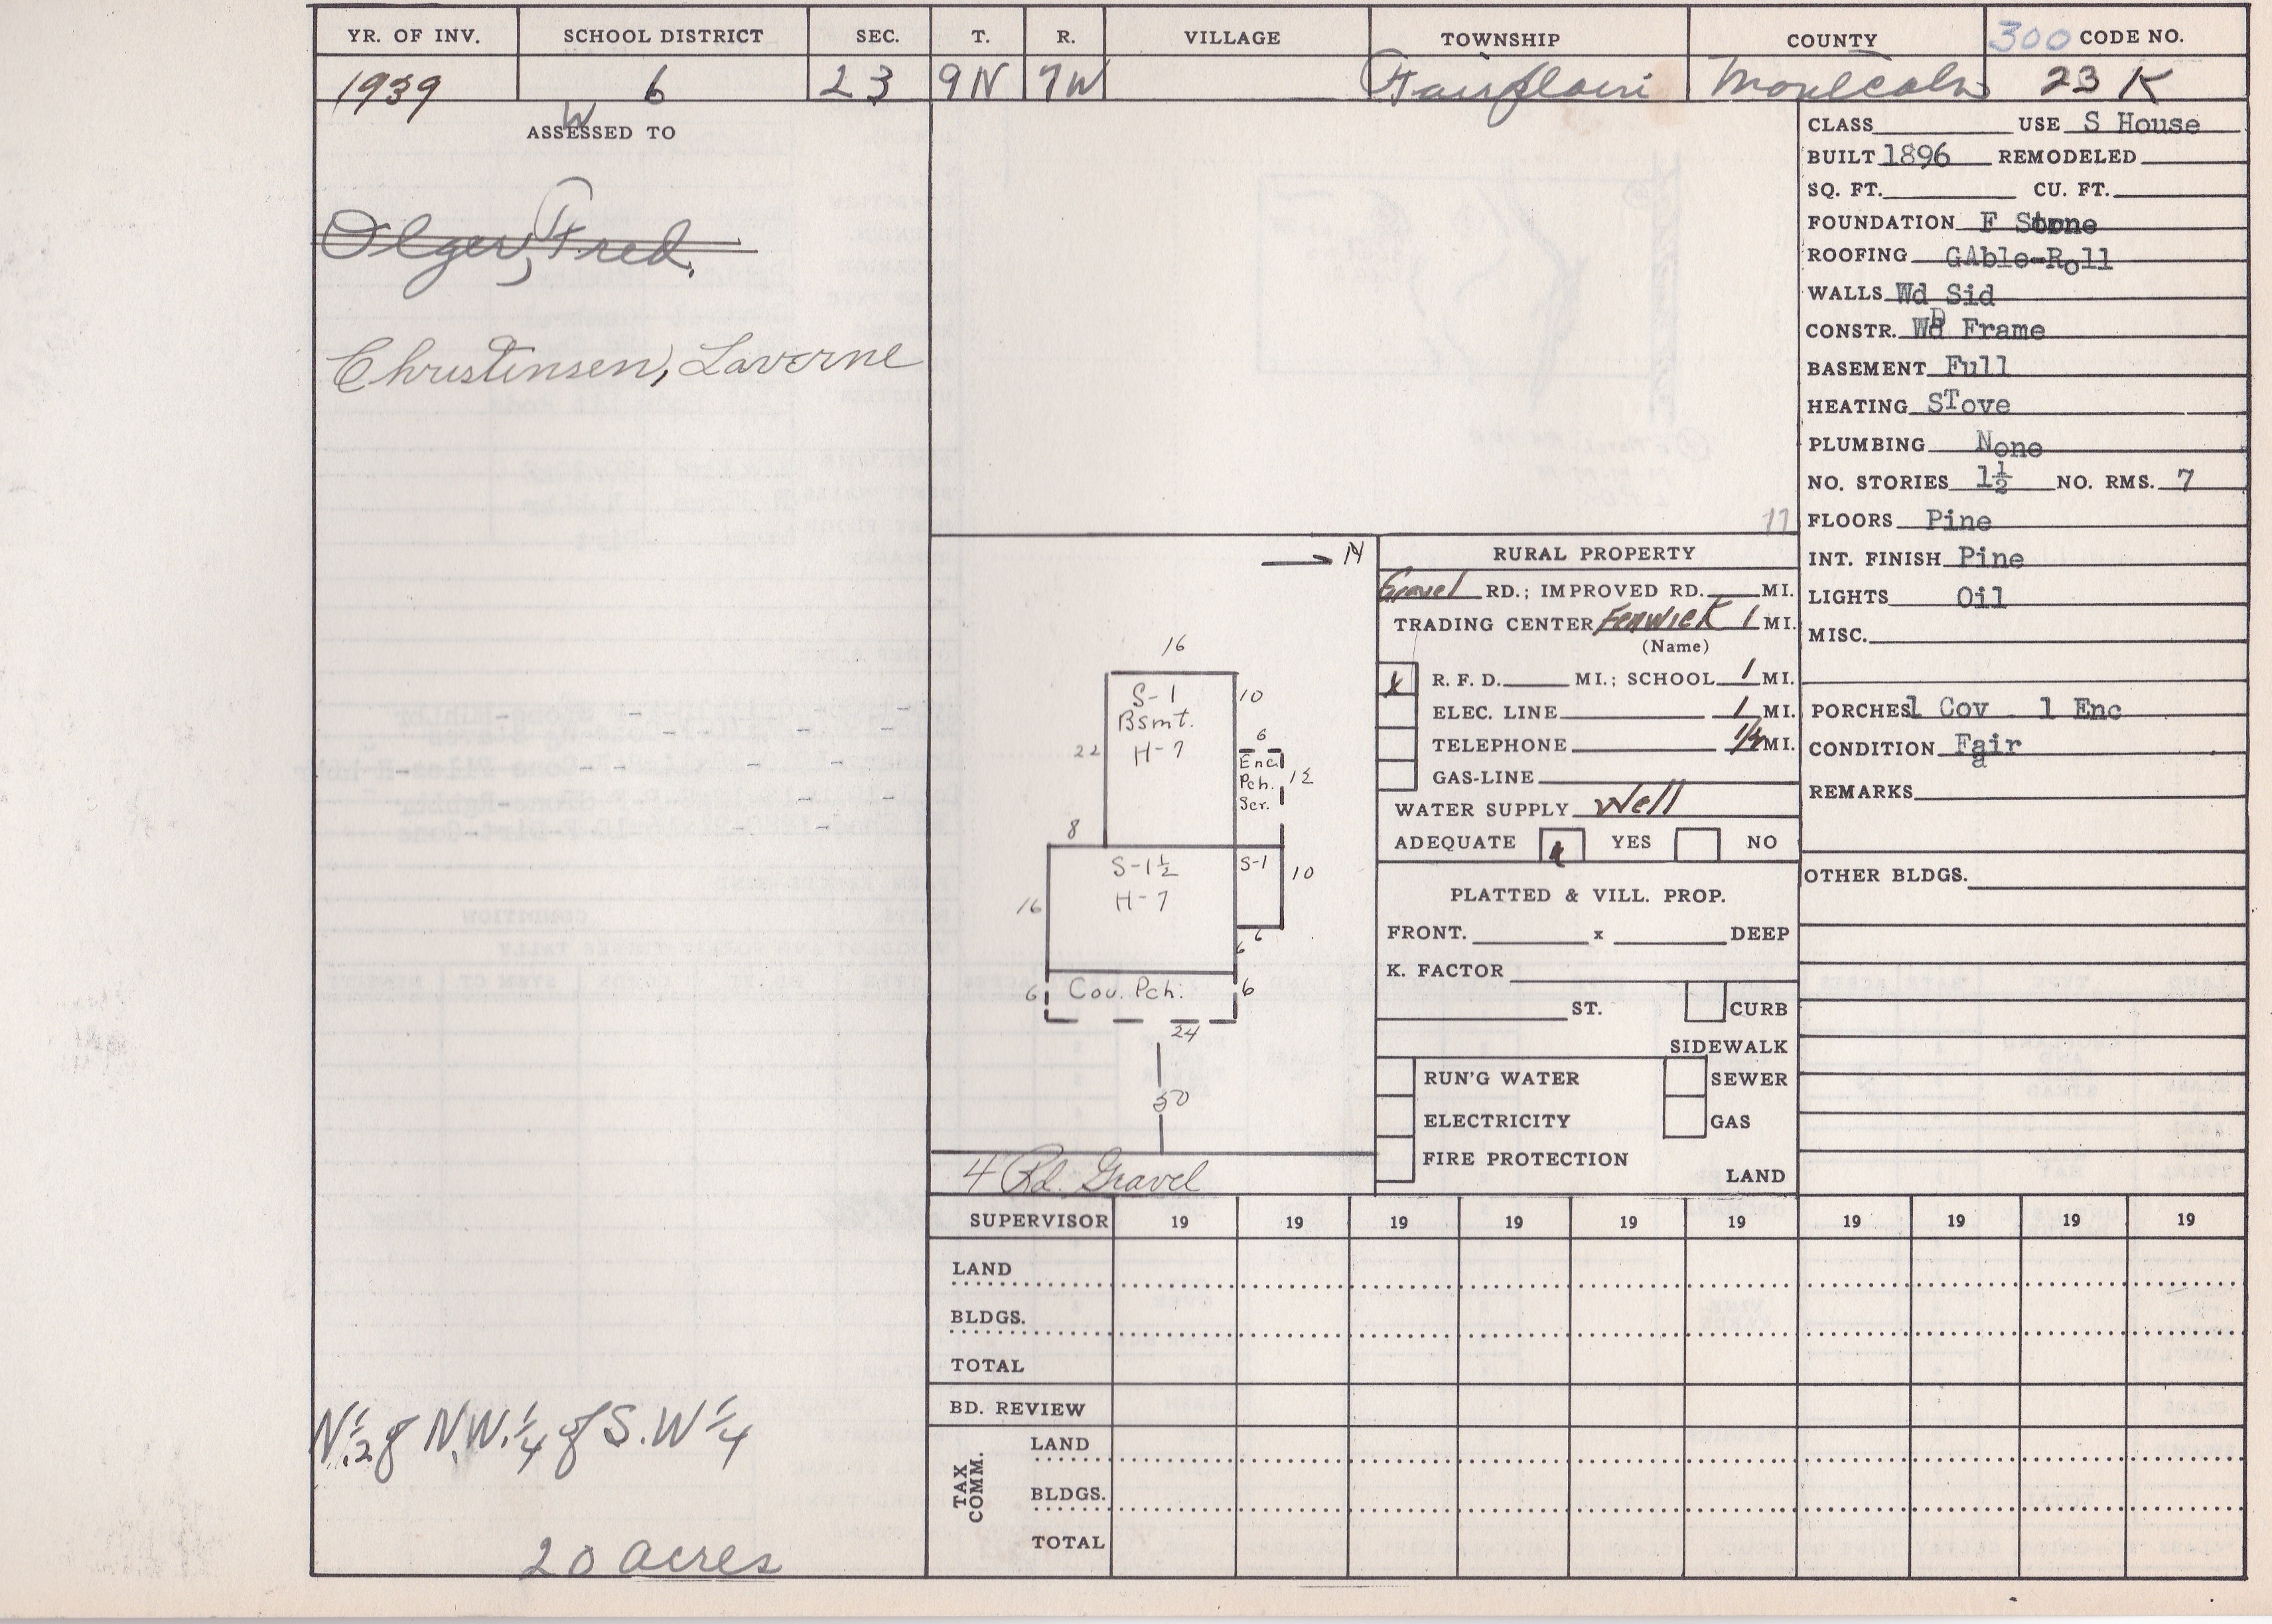 YR. OF INV. SCHOOL DISTRICT SEC. T. R. VILLAGE TOWNSHIP COUNTY 300 CODE NO.
1939 6 23 9N 7W Fairplain Montcalm 23 K
W
ASSESSED TO
Olger, Fred.
Christensen, Laverne
N.1/2 of N.W.1/4 of S.W 1/4
20 acres
17
N
16
S-1
Bsmt.
H-7
10
22
6
Encl
Pch.
Scr.
12
8
S-1½
H-7
S-1
10
16
6
6
6 Cov. Pch. 6
24
50
4 Rd. Gravel
RURAL PROPERTY
Gravel RD.; IMPROVED RD. MI.
TRADING CENTER Fenwick 1 MI.
(Name)
X R. F. D. MI.; SCHOOL 1 MI.
ELEC. LINE 1 MI.
TELEPHONE 1/4 MI.
GAS-LINE
WATER SUPPLY Well
ADEQUATE x YES NO
PLATTED & VILL. PROP.
FRONT. x DEEP
K. FACTOR
ST. CURB
SIDEWALK
RUN'G WATER SEWER
ELECTRICITY GAS
FIRE PROTECTION
LAND
CLASS USE S House
BUILT 1896 REMODELED
SQ. FT. CU. FT.
FOUNDATION F Stone
ROOFING GAble-Roll
WALLS Wd Sid
CONSTR. Wd Frame
BASEMENT Full
HEATING STove
PLUMBING None
NO. STORIES 1½ NO. RMS. 7
FLOORS Pine
INT. FINISH Pine
LIGHTS Oil
MISC.
PORCHES 1 Cov 1 Enc
CONDITION Fair
REMARKS
OTHER BLDGS.
SUPERVISOR 19 19 19 19 19 19 19 19 19 19
LAND
BLDGS.
TOTAL
BD. REVIEW
TAX COMM.
LAND
BLDGS.
TOTAL